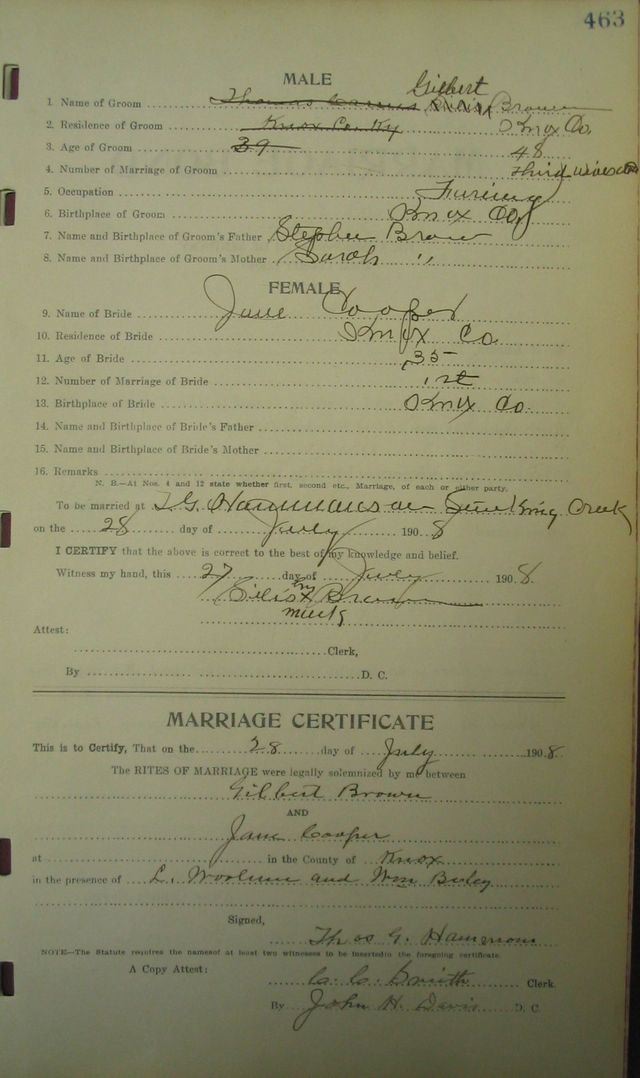 463
MALE
Gilbert
1. Name of Groom Thomas Brown
2. Residence of Groom Knox Co. Ky Knox Co.
3. Age of Groom 39 48
4. Number of Marriage of Groom third
5. Occupation
6. Birthplace of Groom Knox Co
7. Name and Birthplace of Groom's Father Stephen Brown
8. Name and Birthplace of Groom's Mother Sarah "
FEMALE
9. Name of Bride Jane Cooper
10. Residence of Bride Knox Co
11. Age of Bride 35
12. Number of Marriage of Bride 1st
13. Birthplace of Bride Knox Co.
14. Name and Birthplace of Bride's Father
15. Name and Birthplace of Bride's Mother
16. Remarks
N. B.—At Nos. 4 and 12 state whether first, second etc., Marriage, of each or either party.
To be married at T. G. on Stinking Creek
on the 28 day of July 1908
I CERTIFY that the above is correct to the best of my knowledge and belief.
Witness my hand, this 27 day of July 1908
x Brown
mark
Attest:
Clerk,
By D. C.
MARRIAGE CERTIFICATE
This is to Certify, That on the 28 day of July 1908
The RITES OF MARRIAGE were legally solemnized by me between
Gilbert Brown
AND
Jane Cooper
at in the County of Knox
in the presence of L. and Wm
Signed,
Thos G.
NOTE—The Statute requires the names of at least two witnesses to be inserted in the foregoing certificate.
A Copy Attest: C. C. Smith Clerk.
By John H. Davis D. C.